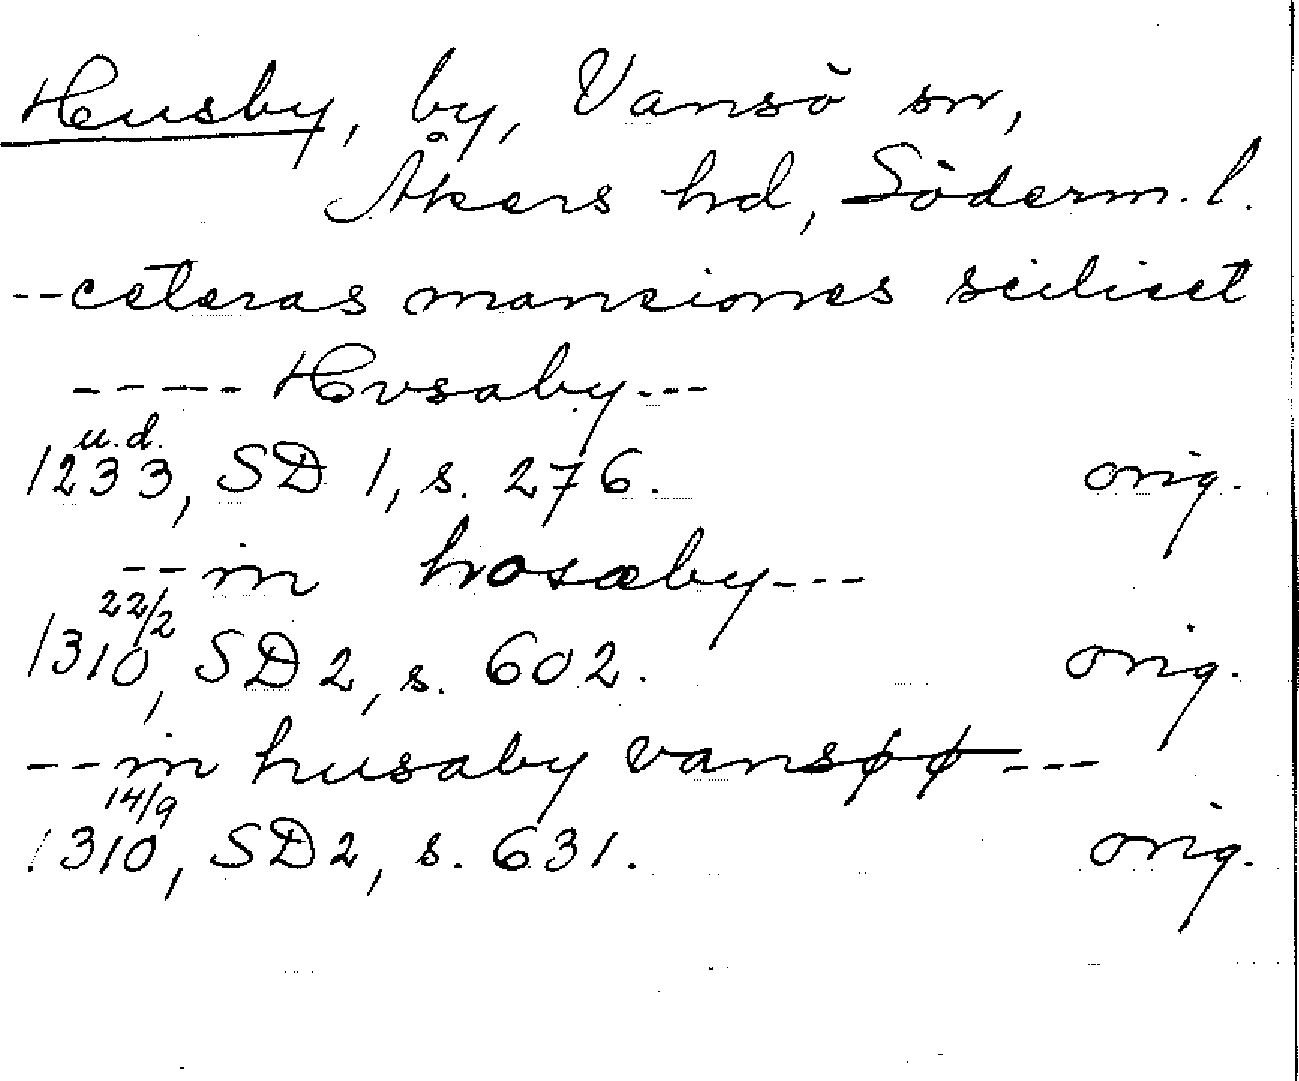 Husby, by, Vansö sn,
Åkers hd, Söderm. l.
--ceteras mansiones scilicet
----- Hvsaby---
u.d.
1233, SD 1, s. 276. orig.
--in hosæby---
22/2
1310, SD 2, s. 602. orig.
--in husaby vansøø---
14/9
1310, SD 2, s. 631. orig.